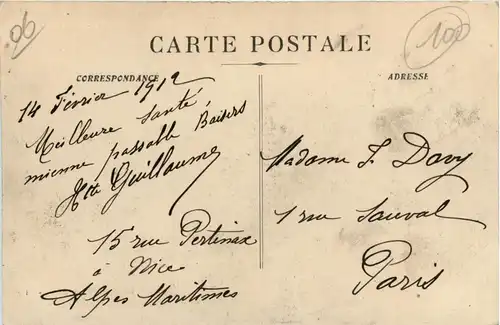 06
100
CARTE POSTALE
CORRESPONDANCE
ADRESSE
14 Février 1912
Meilleure Santé
mienne passable Baisers
Hte Guillaume
15 rue Pertinax
à Nice
Alpes Maritimes
Madame F. Davy
1 rue Sauval
Paris